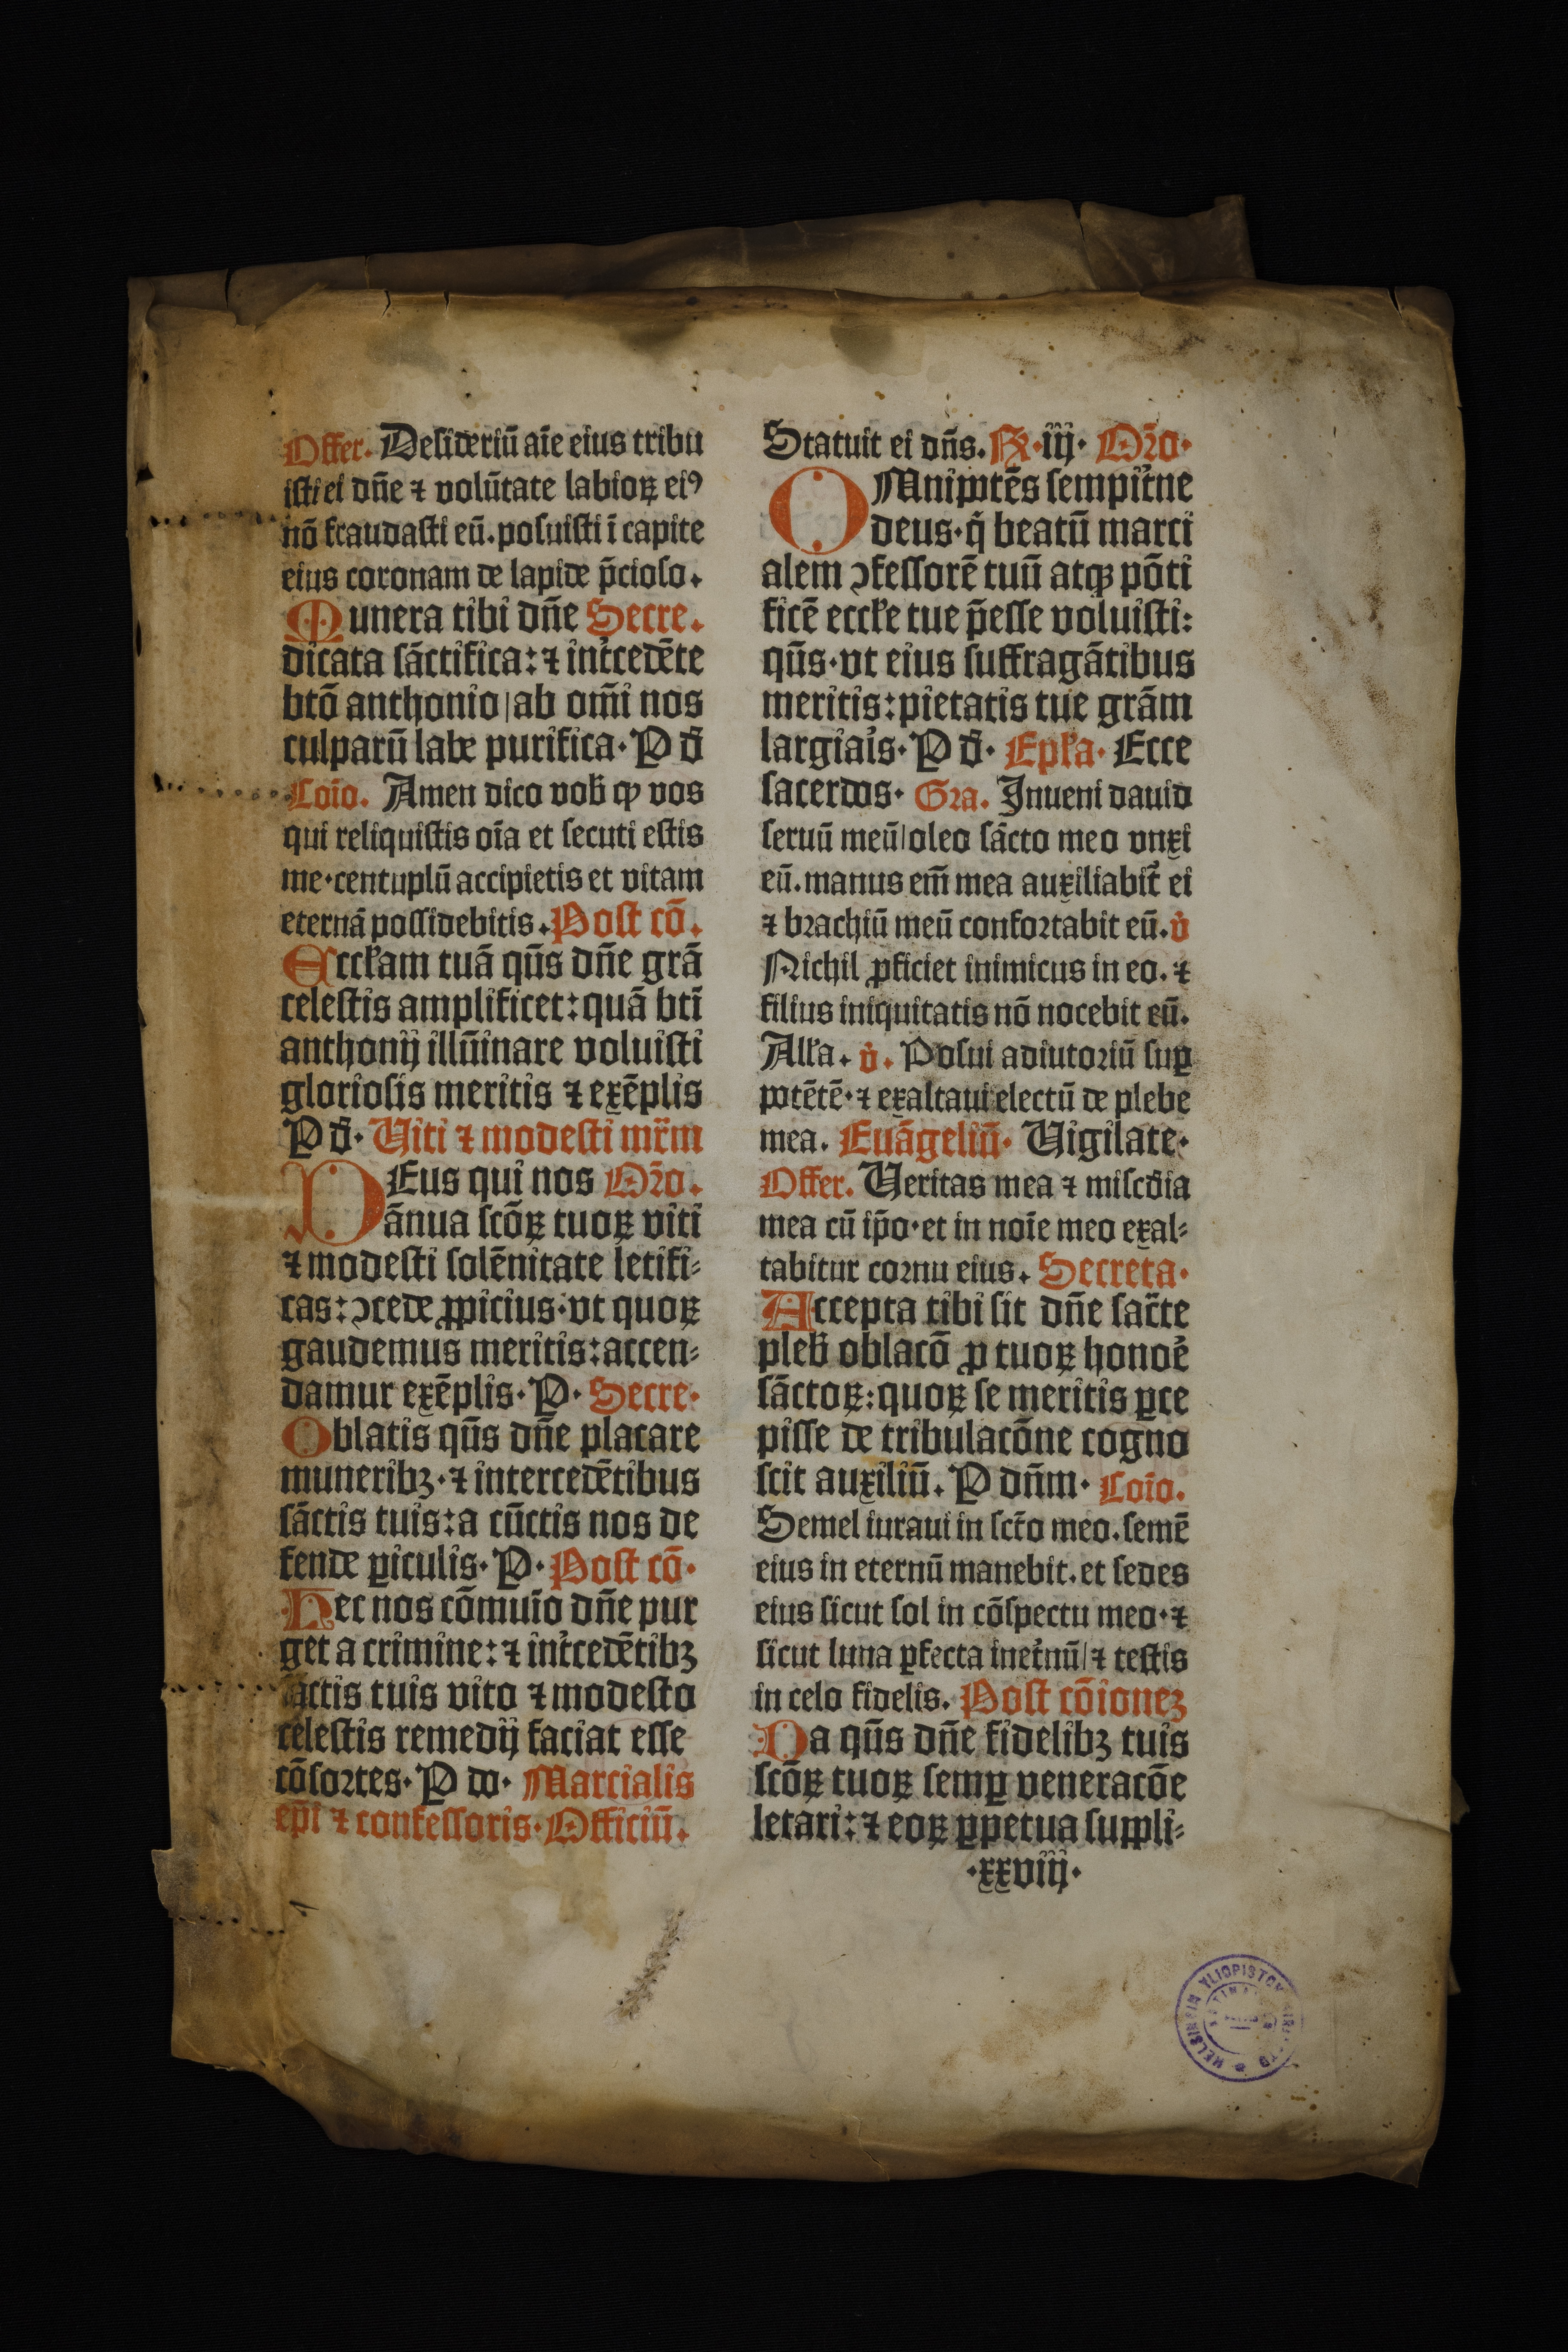 Offer. Desideriū aīe eius tribu
isti ei dn̄e ⁊ volūtate labioꝝ eiꝰ
nō fraudasti eū. posuisti ī capite
eius coronam de lapide p̄cioso.
Munera tibi dn̄e Secre.
dicata sāctifica: ⁊ int̉cedēte
btō anthonio | ab om̄i nos
culparū labe purifica. P d̄
Coīo. Amen dico vob̄ ꝙ vos
qui reliquistis oīa et secuti estis
me. centuplū accipietis et vitam
eternā possidebitis. Post cō.
Eccl̄am tuā qūs dn̄e grā
celestis amplificet: quā btī
anthonij illūinare voluisti
gloriosis meritis ⁊ exēplis
P d̄. Viti ⁊ modesti mr̄m
DEus qui nos Or̄o.
ānua scōꝝ tuoꝝ viti
⁊ modesti solēnitate letifi⸗
cas: ɔcede ꝓpicius. vt quoꝝ
gaudemus meritis: accen⸗
damur exēplis. P. Secre.
Oblatis qūs dn̄e placare
muneribꝫ. ⁊ intercedētibus
sāctis tuis: a cūctis nos de
fende ꝑiculis. P. Post cō.
Hec nos cōmuīo dn̄e pur
get a crimine: ⁊ int̉cedētibꝫ
sāctis tuis vito ⁊ modesto
celestis remedij faciat esse
cōsortes. P do. Marcialis
ep̄i ⁊ confessoris. Officiū.
Statuit ei dn̄s. R̷. iij. Or̄o.
OMnipotēs sempit̉ne
deus. q̇ beatū marci
alem ɔfessorē tuū atqꝫ pōti
ficē eccl̄e tue p̄esse voluisti:
qūs. vt eius suffragātibus
meritis: pietatis tue grām
largiaīs. P d̄. Epl̄a. Ecce
sacerdos. Gra. Inueni dauid
seruū meū | oleo sācto meo vnxi
eū. manus em̄ mea auxiliabit̉ ei
⁊ brachiū meū confortabit eū. v̇
Nichil ꝓficiet inimicus in eo. ⁊
filius iniquitatis nō nocebit eū.
All̄a. v̇. Posui adiutoriū suꝑ
potētē. ⁊ exaltaui electū de plebe
mea. Euāgeliū. Vigilate.
Offer. Veritas mea ⁊ miscd̄ia
mea cū ip̄o. et in noīe meo exal⸗
tabitur cornu eius. Secreta.
Accepta tibi sit dn̄e sac̄te
pleb̄ oblacō ꝓ tuoꝝ honoē
sāctoꝝ: quoꝝ se meritis ꝑce
pisse de tribulacōne cogno
scit auxiliū. P dn̄m. Coīo.
Semel iuraui in sct̄o meo. semē
eius in eternū manebit. et sedes
eius sicut sol in cōspectu meo. ⁊
sicut luna ꝑfecta inet̉nū | ⁊ testis
in celo fidelis. Post cōionez
Da qūs dn̄e fidelibꝫ tuis
scōꝝ tuoꝝ semꝑ veneracōe
letari: ⁊ eoꝝ ꝑpetua suppli⸗
.xxviij.
HELSINGIN YLIOPISTON